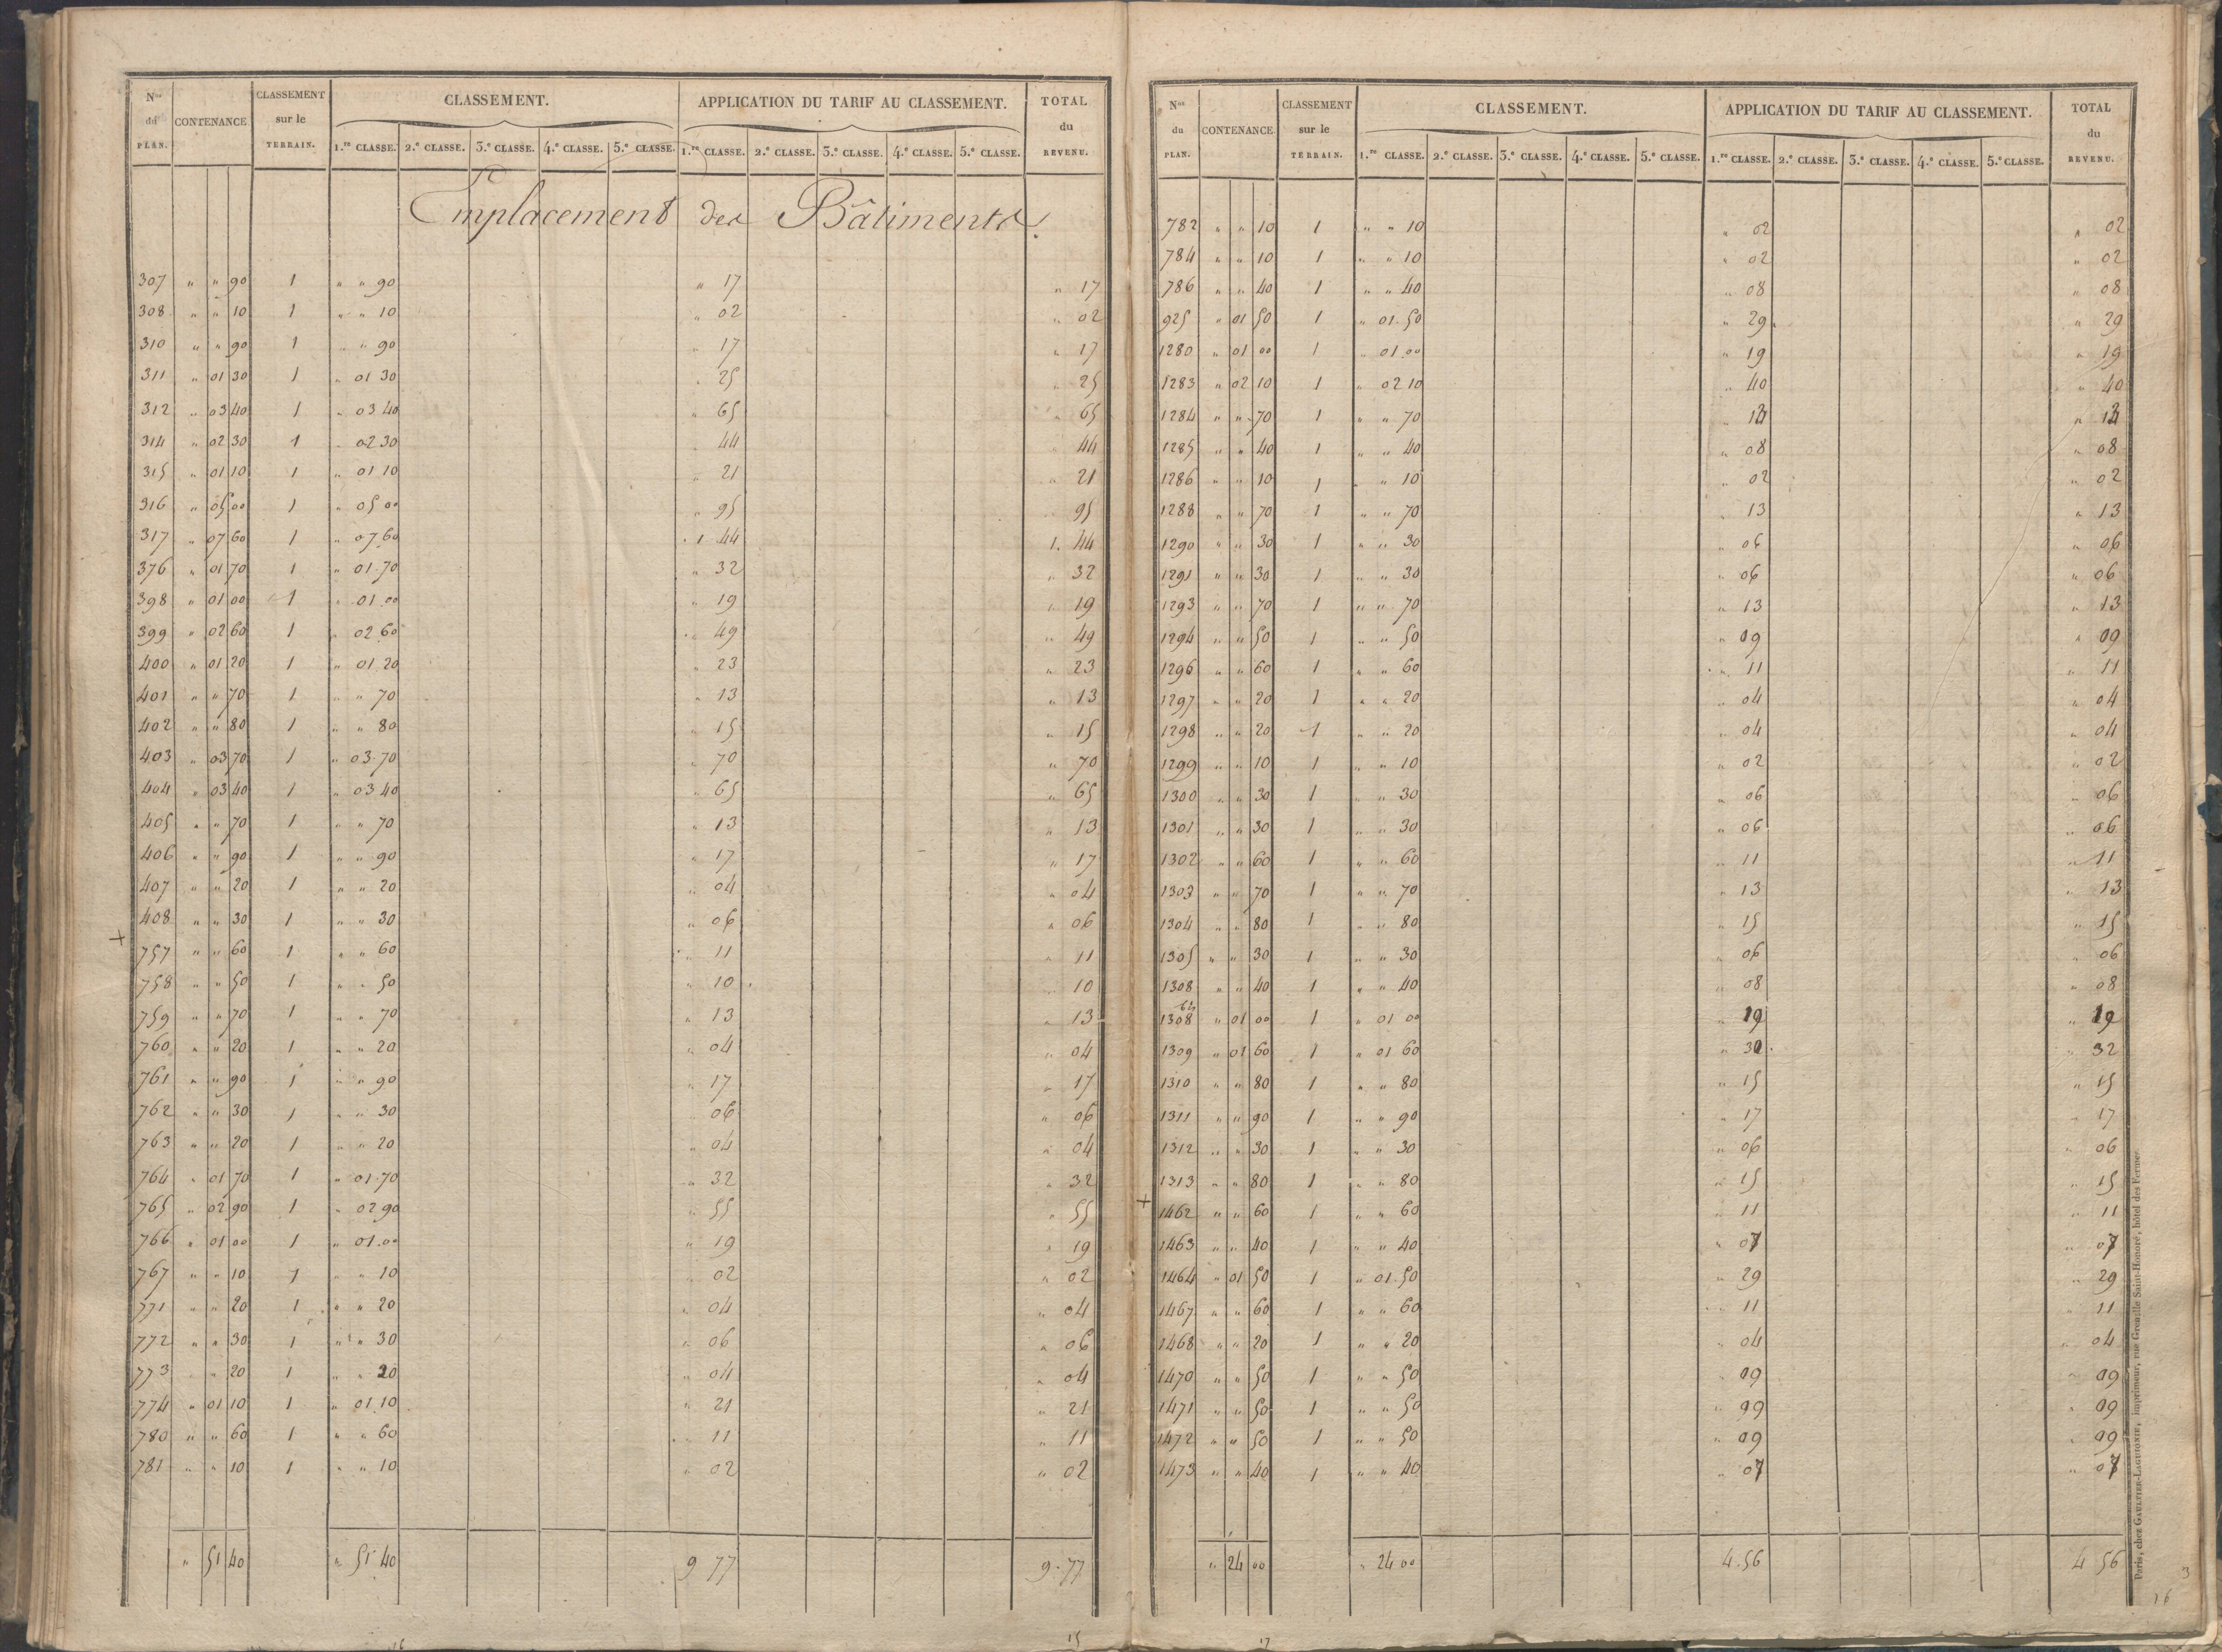 Nos du PLAN. CONTENANCE. CLASSEMENT sur le TERRAIN. CLASSEMENT. APPLICATION DU TARIF AU CLASSEMENT. TOTAL du REVENU.
1.re CLASSE. 2.e CLASSE. 3.e CLASSE. 4.e CLASSE. 5.e CLASSE. 1.re CLASSE. 2.e CLASSE. 3.e CLASSE. 4.e CLASSE. 5.e CLASSE.
Emplacement des Bâtiments.
307 " " 90 1 " " 90 " 17 " 17
308 " " 10 1 " " 10 " 02 " 02
310 " " 90 1 " " 90 " 17 " 17
311 " 01 30 1 " 01 30 " 25 " 25
312 " 03 40 1 " 03 40 " 65 " 65
314 " 02 30 1 " 02 30 " 44 " 44
315 " 01 10 1 " 01 10 " 21 " 21
316 " 05 00 1 " 05 00 " 95 " 95
317 " 07 60 1 " 07 60 1 44 1. 44
376 " 01 70 1 " 01.70 " 32 " 32
398 " 01 00 1 " 01.00 " 19 " 19
399 " 02 60 1 " 02 60 " 49 " 49
400 " 01 20 1 " 01.20 " 23 " 23
401 " " 70 1 " " 70 " 13 " 13
402 " " 80 1 " " 80 " 15 " 15
403 " 03 70 1 " 03.70 " 70 " 70
404 " 03 40 1 " 03 40 " 65 " 65
405 " " 70 1 " " 70 " 13 " 13
406 " " 90 1 " " 90 " 17 " 17
407 " " 20 1 " " 20 " 04 " 04
408 " " 30 1 " " 30 " 06 " 06
+ 757 " " 60 1 " " 60 " 11 " 11
758 " " 50 1 " " 50 " 10 " 10
759 " " 70 1 " " 70 " 13 " 13
760 " " 20 1 " " 20 " 04 " 04
761 " " 90 1 " " 90 " 17 " 17
762 " " 30 1 " " 30 " 06 " 06
763 " " 20 1 " " 20 " 04 " 04
764 " 01 70 1 " 01.70 " 32 " 32
765 " 02 90 1 " 02 90 " 55 " 55
766 " 01 00 1 " 01.00 " 19 " 19
767 " " 10 1 " " 10 " 02 " 02
771 " " 20 1 " " 20 " 04 " 04
772 " " 30 1 " " 30 " 06 " 06
773 " " 20 1 " " 20 " 04 " 04
774 " 01 10 1 " 01.10 " 21 " 21
780 " " 60 1 " " 60 " 11 " 11
781 " " 10 1 " " 10 " 02 " 02
" 51 40 " 51.40 9 77 9.77
16 15
Nos du PLAN. CONTENANCE. CLASSEMENT sur le TERRAIN. CLASSEMENT. APPLICATION DU TARIF AU CLASSEMENT. TOTAL du REVENU.
1.re CLASSE. 2.e CLASSE. 3.e CLASSE. 4.e CLASSE. 5.e CLASSE. 1.re CLASSE. 2.e CLASSE. 3.e CLASSE. 4.e CLASSE. 5.e CLASSE.
782 " " 10 1 " " 10 " 02 " 02
784 " " 10 1 " " 10 " 02 " 02
786 " " 40 1 " " 40 " 08 " 08
925 " 01 50 1 " 01.50 " 29 " 29
1280 " 01 00 1 " 01.00 " 19 " 19
1283 " 02 10 1 " 02 10 " 40 " 40
1284 " " 70 1 " " 70 " "
1285 " " 40 1 " " 40 " 08 " 08
1286 " " 10 1 " " 10 " 02 " 02
1288 " " 70 1 " " 70 " 13 " 13
1290 " " 30 1 " " 30 " 06 " 06
1291 " " 30 1 " " 30 " 06 " 06
1293 " " 70 1 " " 70 " 13 " 13
1294 " " 50 1 " " 50 " 09 " 09
1296 " " 60 1 " " 60 " 11 " 11
1297 " " 20 1 " " 20 " 04 " 04
1298 " " 20 1 " " 20 " 04 " 04
1299 " " 10 1 " " 10 " 02 " 02
1300 " " 30 1 " " 30 " 06 " 06
1301 " " 30 1 " " 30 " 06 " 06
1302 " " 60 1 " " 60 " 11 " 11
1303 " " 70 1 " " 70 " 13 " 13
1304 " " 80 1 " " 80 " 15 " 15
1305 " " 30 1 " " 30 " 06 " 06
1308 " " 40 1 " " 40 " 08 " 08
1308 bis " 01 00 1 " 01 00 " 19 " 19
1309 " 01 60 1 " 01 60 " " 32
1310 " " 80 1 " " 80 " 15 " 15
1311 " " 90 1 " " 90 " 17 " 17
1312 " " 30 1 " " 30 " 06 " 06
1313 " " 80 1 " " 80 " 15 " 15
+ 1462 " " 60 1 " " 60 " 11 " 11
1463 " " 40 1 " " 40 " 07 " 07
1464 " 01 50 1 " 01.50 " 29 " 29
1467 " " 60 1 " " 60 " 11 " 11
1468 " " 20 1 " " 20 " 04 " 04
1470 " " 50 1 " " 50 " 09 " 09
1471 " " 50 1 " " 50 " 09 " 09
1472 " " 50 1 " " 50 " 09 " 09
1473 " " 40 1 " " 40 " 07 " 07
" 24 00 " 24 00 4.56 4 56
Paris, chez GAULTIER-LAGUIONIE, imprimeur, rue Grenelle Saint-Honoré, hôtel des Fermes.